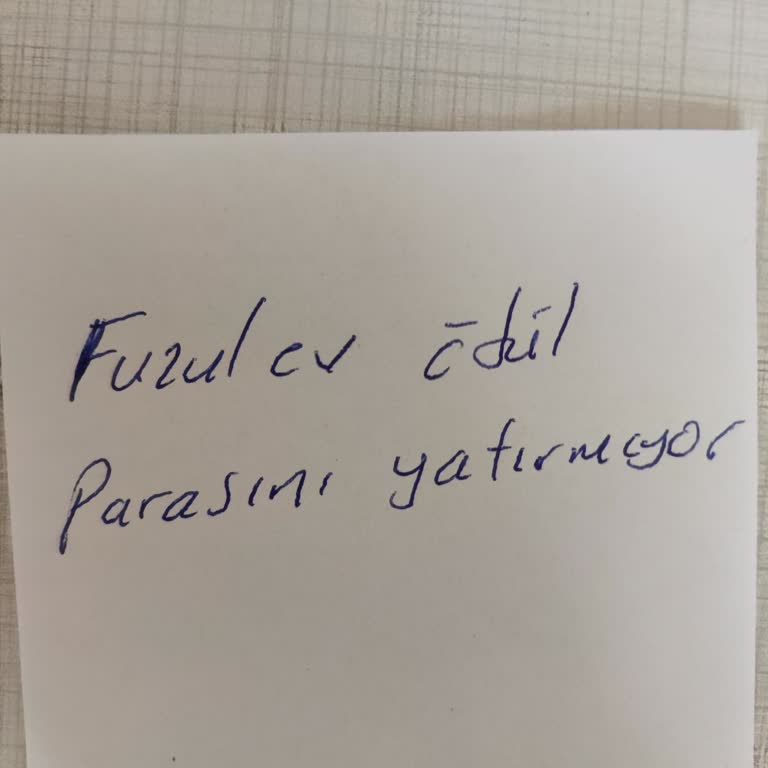 Fuzul ev ödül
Parasını yatırmıyor